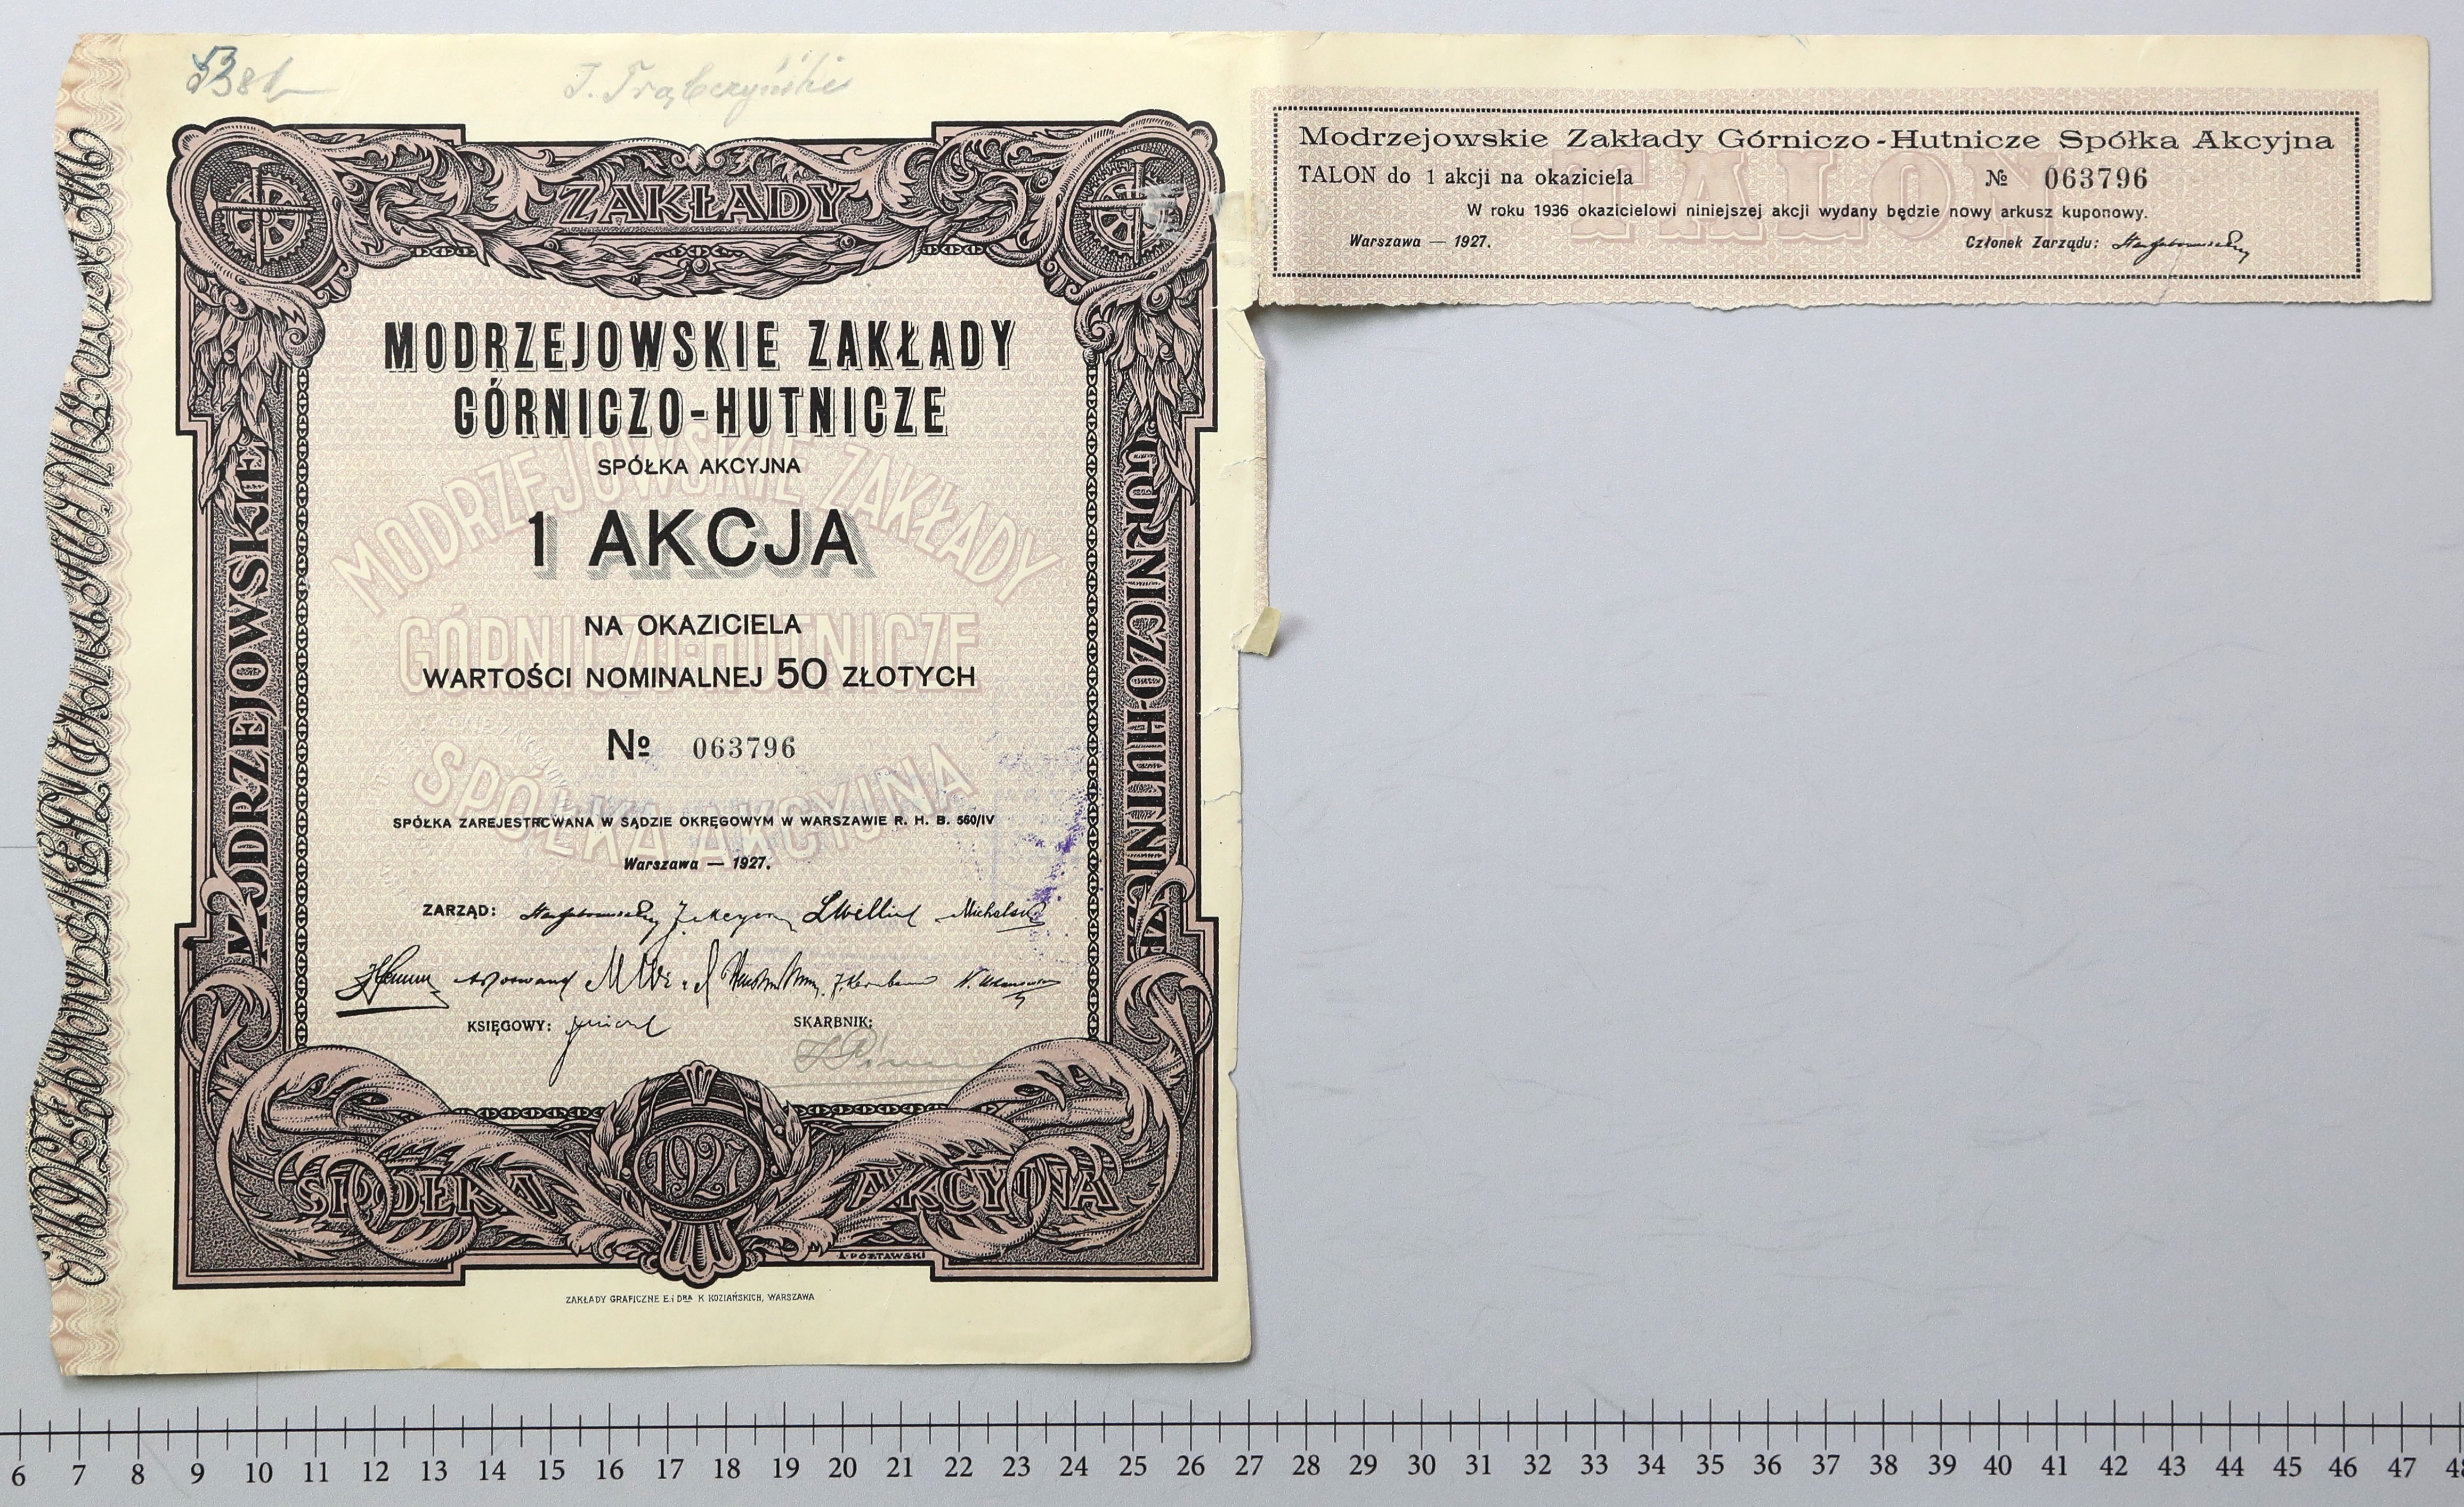 J. Trąbczyński
ZAKŁADY
MODRZEJOWSKIE
GÓRNICZO-HUTNICZE
MODRZEJOWSKIE ZAKŁADY
GÓRNICZO-HUTNICZE
SPÓŁKA AKCYJNA
1 AKCJA
NA OKAZICIELA
WARTOŚCI NOMINALNEJ 50 ZŁOTYCH
№ 063796
SPÓŁKA ZAREJESTROWANA W SĄDZIE OKRĘGOWYM W WARSZAWIE R. H. B. 560/IV
Warszawa — 1927.
ZARZĄD:
KSIĘGOWY:
SKARBNIK:
MODRZEJOWSKIE ZAKŁADY
GÓRNICZO-HUTNICZE
SPÓŁKA AKCYJNA
SPÓŁKA 1927 AKCYJNA
ZAKŁADY GRAFICZNE E. i DRA K KOZIAŃSKICH, WARSZAWA
Modrzejowskie Zakłady Górniczo-Hutnicze Spółka Akcyjna
TALON
TALON do 1 akcji na okaziciela № 063796
W roku 1936 okazicielowi niniejszej akcji wydany będzie nowy arkusz kuponowy.
Warszawa — 1927. Członek Zarządu:
6 7 8 9 10 11 12 13 14 15 16 17 18 19 20 21 22 23 24 25 26 27 28 29 30 31 32 33 34 35 36 37 38 39 40 41 42 43 44 45 46 47